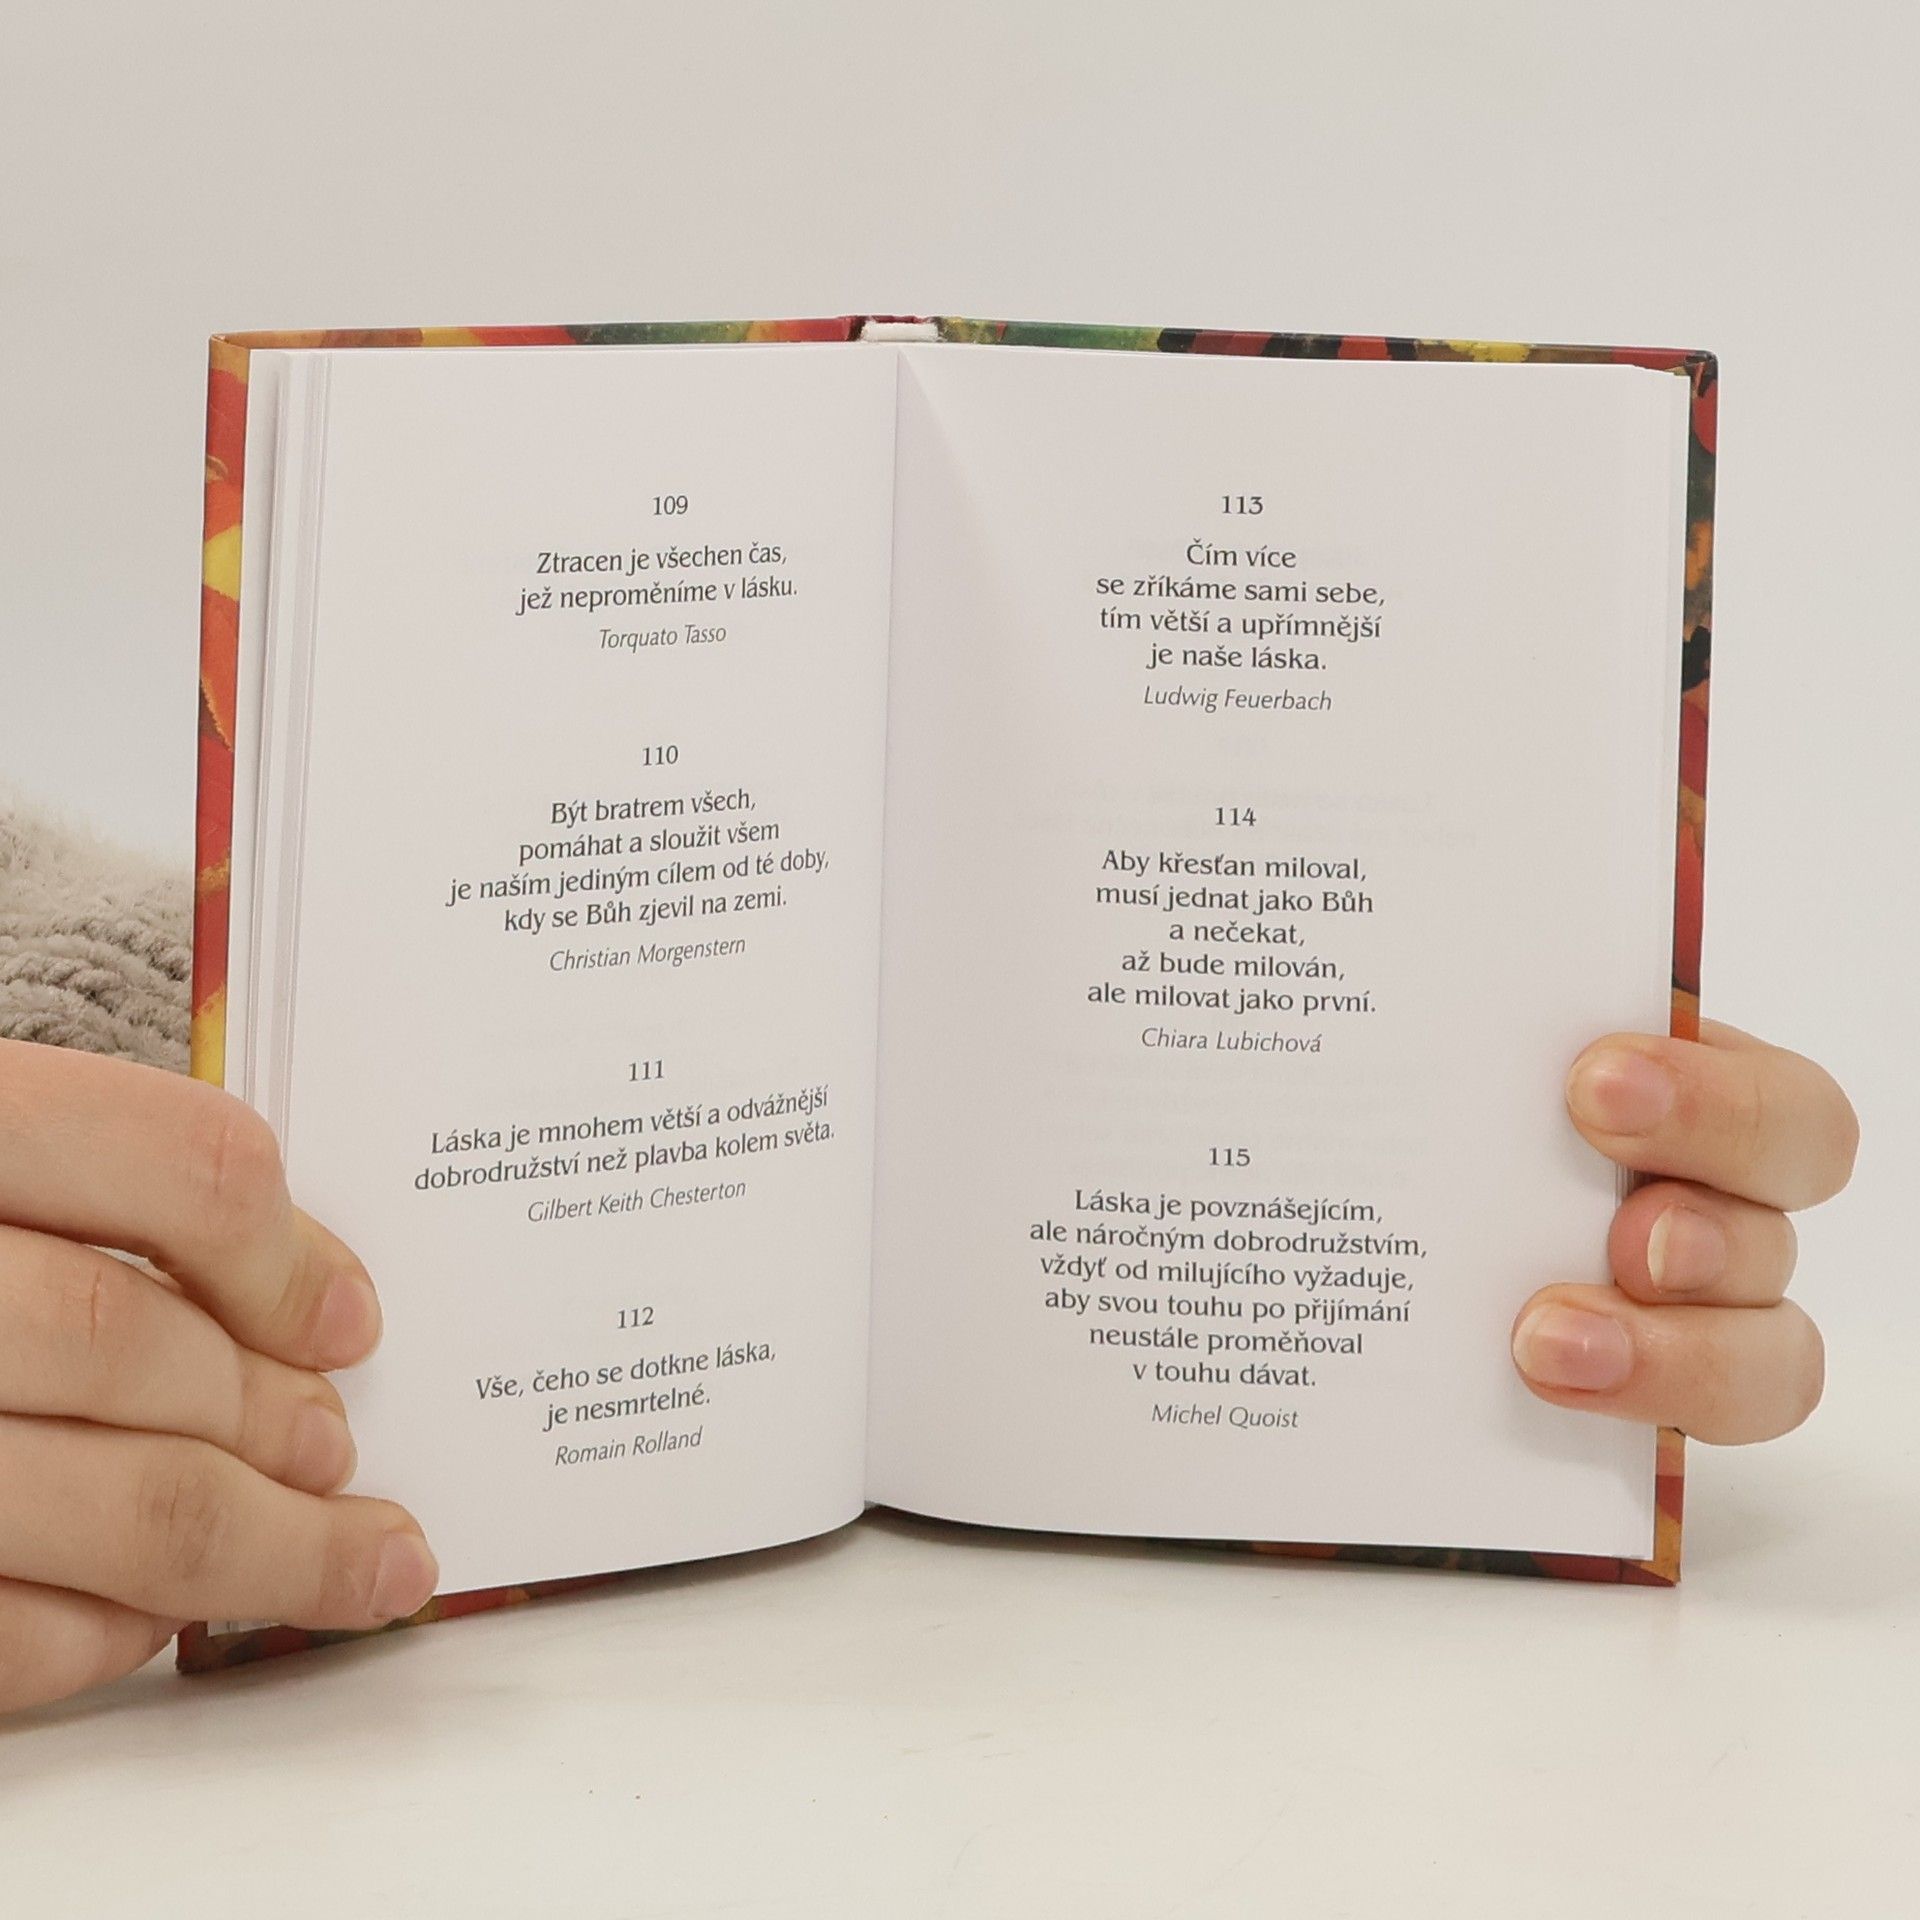 109
Ztracen je všechen čas,
jež neproměníme v lásku.
Torquato Tasso
110
Být bratrem všech,
pomáhat a sloužit všem
je naším jediným cílem od té doby,
kdy se Bůh zjevil na zemi.
Christian Morgenstern
111
Láska je mnohem větší a odvážnější
dobrodružství než plavba kolem světa.
Gilbert Keith Chesterton
112
Vše, čeho se dotkne láska,
je nesmrtelné.
Romain Rolland
113
Čím více
se zříkáme sami sebe,
tím větší a upřímnější
je naše láska.
Ludwig Feuerbach
114
Aby křesťan miloval,
musí jednat jako Bůh
a nečekat,
až bude milován,
ale milovat jako první.
Chiara Lubichová
115
Láska je povznášejícím,
ale náročným dobrodružstvím,
vždyť od milujícího vyžaduje,
aby svou touhu po přijímání
neustále proměňoval
v touhu dávat.
Michel Quoist